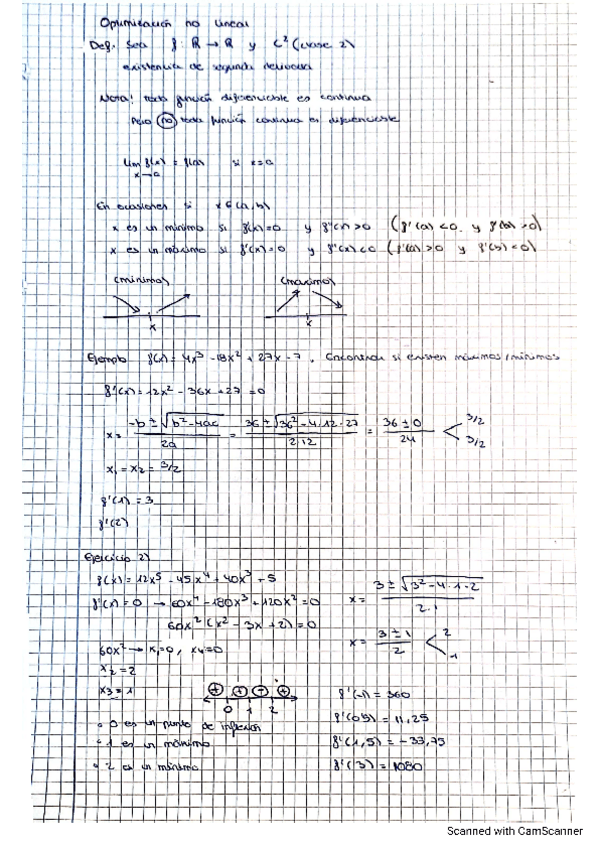 Optimización no lineal
Def. Sea f: R → R y C² (clase 2)
existencia de segunda derivada
Nota! toda función diferenciable es continua
Pero no toda función continua es diferenciable
lim f(x) = f(a) si x=a
x→a
En ocasiones si x ∈ (a, b)
x es un mínimo si f'(x)=0 y f''(x)>0 (f'(a) <0 y f'(b) >0)
x es un máximo si f'(x)=0 y f''(x)<0 (f'(a) >0 y f'(b) <0)
(mínimo) (máximo)
x x
Ejemplo f(x) = 4x³ -18x² + 27x - 7. Encontrar si existen máximos/mínimos
f'(x) = 12x² - 36x + 27 = 0
x = -b ± √b² - 4ac / 2a = 36 ± √36² - 4·12·27 / 2·12 = 36 ± 0 / 24 < 3/2 3/2
x₁ = x₂ = 3/2
f'(1) = 3
f'(2)
Ejercicio 2)
f(x) = 12x⁵ - 45x⁴ + 40x³ + 5
f'(x) = 0 → 60x⁴ - 180x³ + 120x² = 0
60x² (x² - 3x + 2) = 0
x = 3 ± √3² - 4·1·2 / 2·1
x = 3 ± 1 / 2 < 2 1
60x² → x₁=0, x₄=0
x₂ = 2
x₃ = 1
+ + - +
0 1 2
• 0 es un punto de inflexión
• 1 es un máximo
• 2 es un mínimo
f'(-1) = 360
f'(0,5) = 11,25
f'(1,5) = -33,75
f'(3) = 1080
Scanned with CamScanner